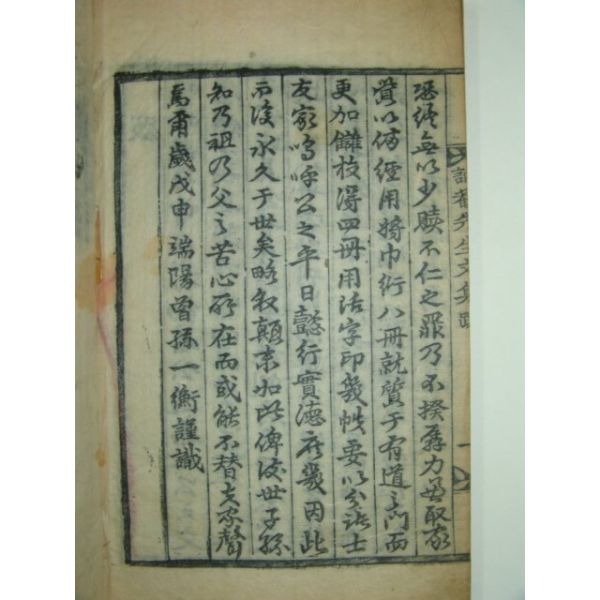 恐終無以少贖不仁之罪乃不揆孱力取家
貲以備經用將巾衍八冊就質于有道之門而
更加讎校得四冊用活字印幾帙要以分諸士
友家嗚呼公之平日懿行實德庶幾因此
而後永久于世矣略叙顚末如此俾後世子孫
知乃祖乃父之苦心所在而或能不替夫家聲
焉爾歲戊申端陽曾孫一衡謹識
先生文集跋 一